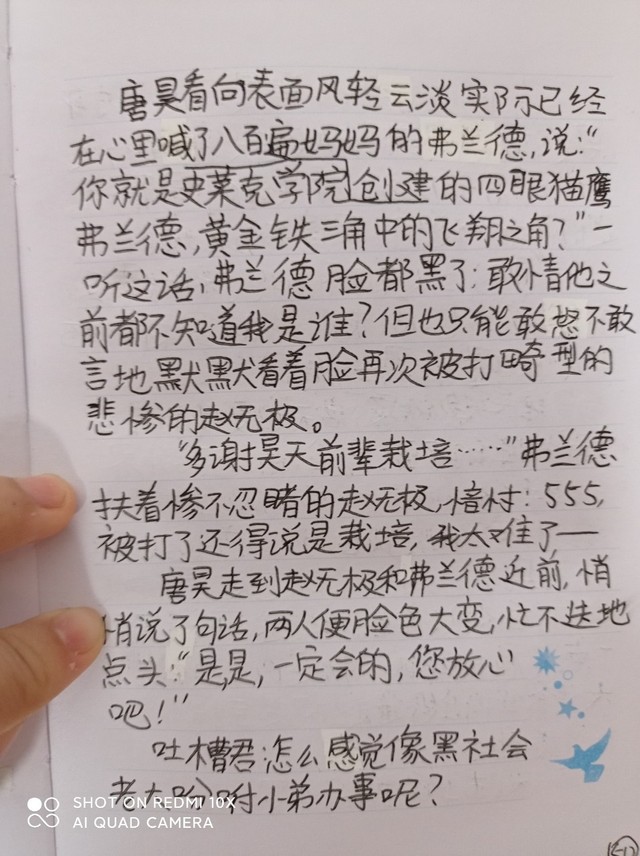 唐昊看向表面风轻云淡实际已经
在心里喊了八百遍妈妈的弗兰德,说:“
你就是史莱克学院创建的四眼猫鹰
弗兰德,黄金铁三角中的飞翔之角?”一
听这话,弗兰德脸都黑了:敢情他之
前都不知道我是谁?但也只能敢怒不敢
言地默默看着脸再次被打畸型的
悲惨的赵无极。
“多谢昊天前辈栽培……”弗兰德
扶着惨不忍睹的赵无极,暗忖:555,
被打了还得说是栽培,我太难了——
唐昊走到赵无极和弗兰德近前,悄
悄说了句话,两人便脸色大变,忙不迭地
点头:“是,是,一定会的,您放心
吧!”
吐槽君:怎么感觉像黑社会
老大吩咐小弟办事呢?
SHOT ON REDMI 10X
AI QUAD CAMERA